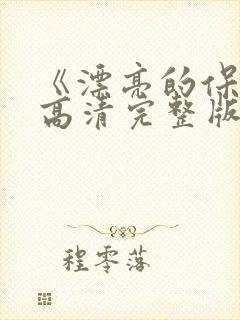 《漂亮的保
高清完整版
程零落